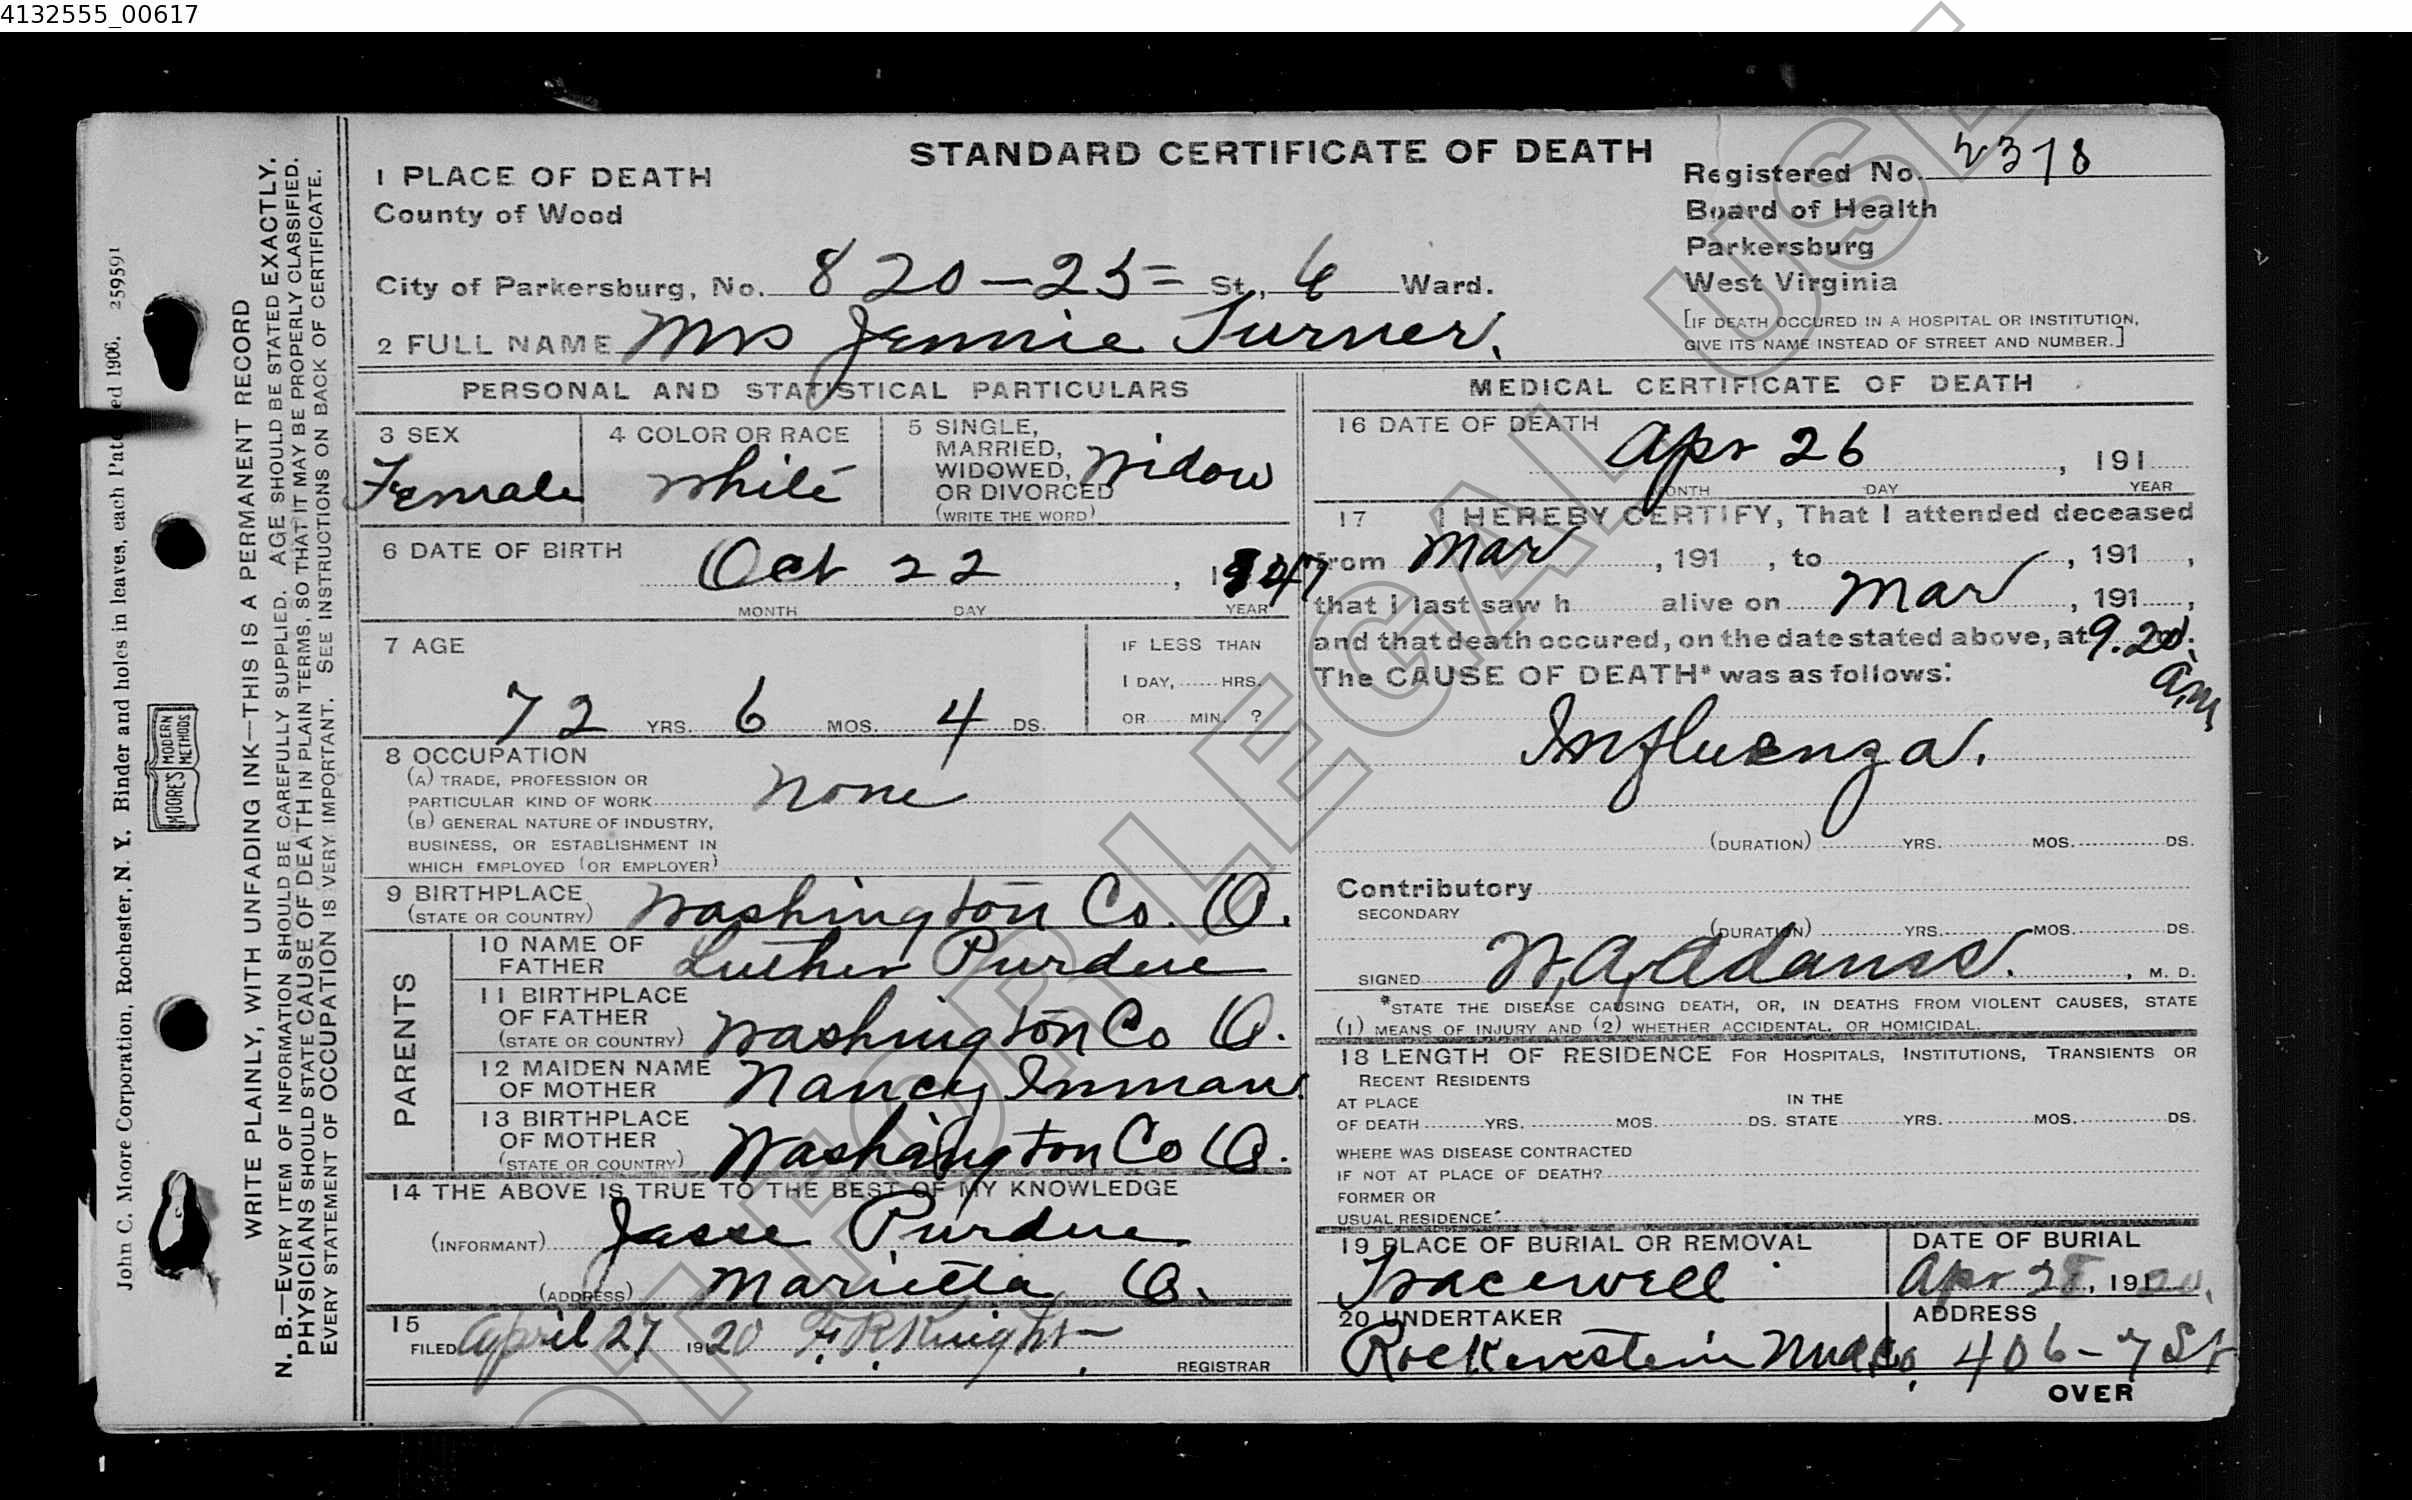 4132555_00617
STANDARD CERTIFICATE OF DEATH
1 PLACE OF DEATH
County of Wood
Registered No. 2378
Board of Health
Parkersburg
West Virginia
City of Parkersburg, No. 820-25= St., 6 Ward.
2 FULL NAME Mrs Jennie Turner.
[IF DEATH OCCURED IN A HOSPITAL OR INSTITUTION,
GIVE ITS NAME INSTEAD OF STREET AND NUMBER.]
PERSONAL AND STATISTICAL PARTICULARS
3 SEX
Female
4 COLOR OR RACE
White
5 SINGLE,
MARRIED,
WIDOWED,
OR DIVORCED
(WRITE THE WORD)
Widow
6 DATE OF BIRTH
Oct 22, 1847
MONTH DAY YEAR
7 AGE
72 YRS. 6 MOS. 4 DS.
IF LESS THAN
1 DAY, HRS.
OR MIN. ?
8 OCCUPATION
(A) TRADE, PROFESSION OR
PARTICULAR KIND OF WORK none
(B) GENERAL NATURE OF INDUSTRY,
BUSINESS, OR ESTABLISHMENT IN
WHICH EMPLOYED (OR EMPLOYER)
9 BIRTHPLACE
(STATE OR COUNTRY) Washington Co. O.
PARENTS
10 NAME OF
FATHER Luther Purdue
11 BIRTHPLACE
OF FATHER
(STATE OR COUNTRY) Washington Co O.
12 MAIDEN NAME
OF MOTHER Nancy Inman
13 BIRTHPLACE
OF MOTHER
(STATE OR COUNTRY) Washington Co O.
14 THE ABOVE IS TRUE TO THE BEST OF MY KNOWLEDGE
(INFORMANT) Jasse Purdue
(ADDRESS) Marietta O.
15
FILED April 27 1920 F. R. Knight
REGISTRAR
MEDICAL CERTIFICATE OF DEATH
16 DATE OF DEATH
Apr 26, 191
MONTH DAY YEAR
17 I HEREBY CERTIFY, That I attended deceased
from Mar, 191 , to , 191 ,
that I last saw h alive on Mar, 191 ,
and that death occured, on the date stated above, at 9.20
am
The CAUSE OF DEATH* was as follows:
Influenza.
(DURATION) YRS. MOS. DS.
Contributory
SECONDARY
(DURATION) YRS. MOS. DS.
SIGNED W. A. Adams. , M. D.
*STATE THE DISEASE CAUSING DEATH, OR, IN DEATHS FROM VIOLENT CAUSES, STATE
(1) MEANS OF INJURY AND (2) WHETHER ACCIDENTAL, OR HOMICIDAL.
18 LENGTH OF RESIDENCE FOR HOSPITALS, INSTITUTIONS, TRANSIENTS OR
RECENT RESIDENTS
AT PLACE
OF DEATH YRS. MOS. DS.
IN THE
STATE YRS. MOS. DS.
WHERE WAS DISEASE CONTRACTED
IF NOT AT PLACE OF DEATH?
FORMER OR
USUAL RESIDENCE
19 PLACE OF BURIAL OR REMOVAL
Tracewell
DATE OF BURIAL
Apr 28, 1920.
20 UNDERTAKER
Rockenstein
ADDRESS
406-7 St
OVER
WRITE PLAINLY, WITH UNFADING INK—THIS IS A PERMANENT RECORD
N. B.—EVERY ITEM OF INFORMATION SHOULD BE CAREFULLY SUPPLIED. AGE SHOULD BE STATED EXACTLY.
PHYSICIANS SHOULD STATE CAUSE OF DEATH IN PLAIN TERMS, SO THAT IT MAY BE PROPERLY CLASSIFIED.
EVERY STATEMENT OF OCCUPATION IS VERY IMPORTANT. SEE INSTRUCTIONS ON BACK OF CERTIFICATE.
John C. Moore Corporation, Rochester, N. Y. Binder and holes in leaves, each 1906. 259591
MOORE'S MODERN METHODS
FOR LEGAL USE